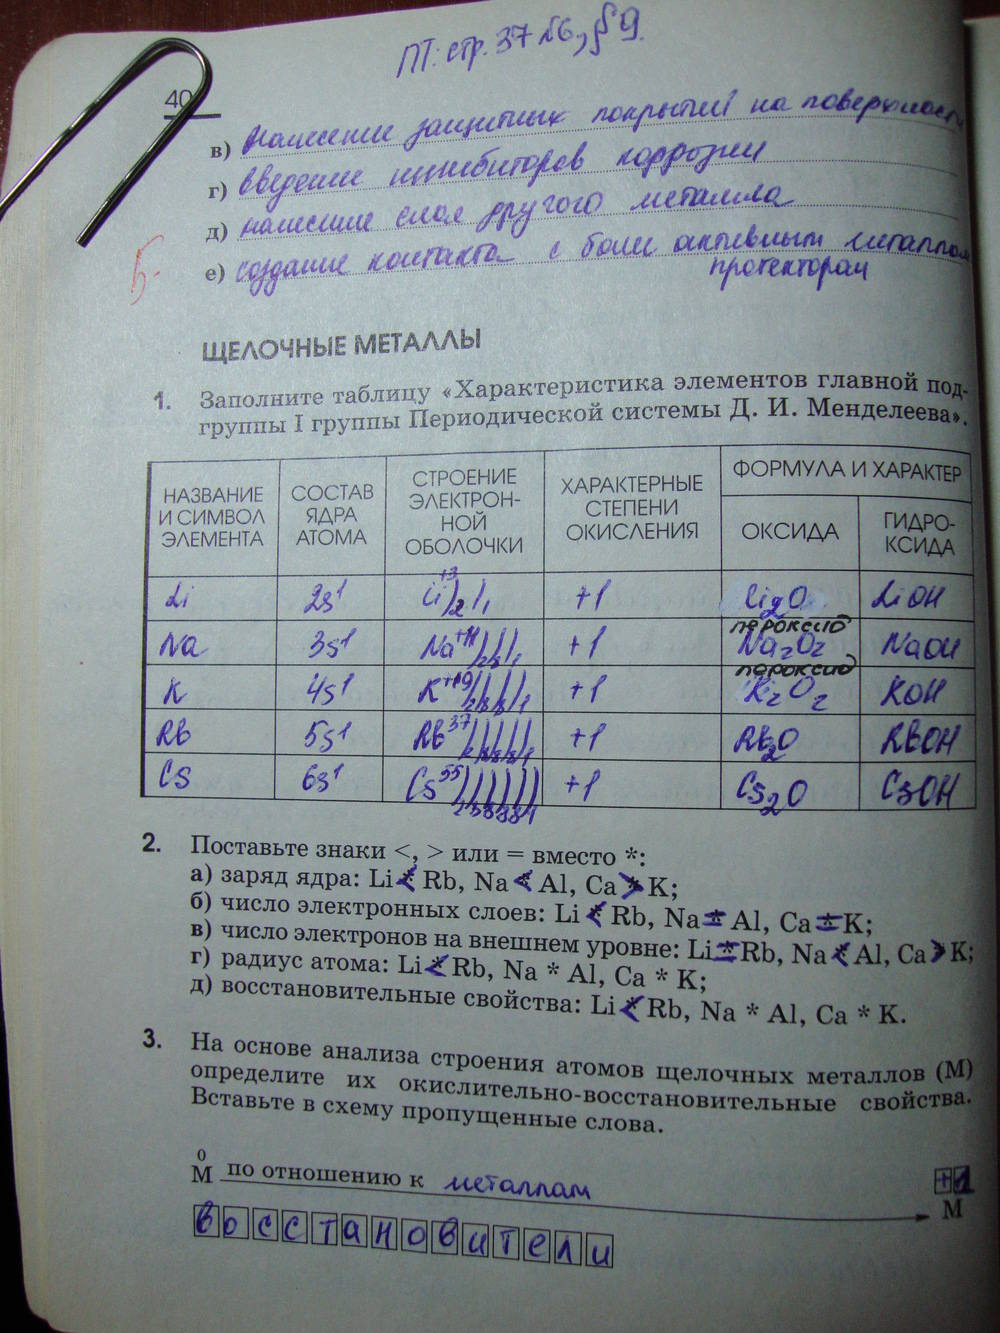 ПТ: стр. 37 №6, §9.
40
в) нанесение защитных покрытий на поверхности
г) введение ингибиторов коррозии
д) нанесение слоя другого металла
е) создание контакта с более активным металлом
протектором
5-
ЩЕЛОЧНЫЕ МЕТАЛЛЫ
1. Заполните таблицу «Характеристика элементов главной под-
группы I группы Периодической системы Д. И. Менделеева».
НАЗВАНИЕ И СИМВОЛ ЭЛЕМЕНТА СОСТАВ ЯДРА АТОМА СТРОЕНИЕ ЭЛЕКТРОН-НОЙ ОБОЛОЧКИ ХАРАКТЕРНЫЕ СТЕПЕНИ ОКИСЛЕНИЯ ФОРМУЛА И ХАРАКТЕР
ОКСИДА ГИДРО-КСИДА
Li 2s1 Li+3)2)1 +1 Li2O LiOH
пероксид
Na 3s1 Na+11)2)8)1 +1 Na2O2 NaOH
пероксид
K 4s1 K+19)2)8)8)1 +1 K2O2 KOH
Rb 5s1 Rb37 +1 Rb2O RbOH
Cs 6s1 Cs55 +1 Cs2O CsOH
2. Поставьте знаки <, > или = вместо *:
а) заряд ядра: Li < Rb, Na < Al, Ca > K;
б) число электронных слоев: Li < Rb, Na = Al, Ca = K;
в) число электронов на внешнем уровне: Li = Rb, Na < Al, Ca > K;
г) радиус атома: Li < Rb, Na * Al, Ca * K;
д) восстановительные свойства: Li < Rb, Na * Al, Ca * K.
3. На основе анализа строения атомов щелочных металлов (М)
определите их окислительно-восстановительные свойства.
Вставьте в схему пропущенные слова.
0 +1
М по отношению к металлам М
восстановители